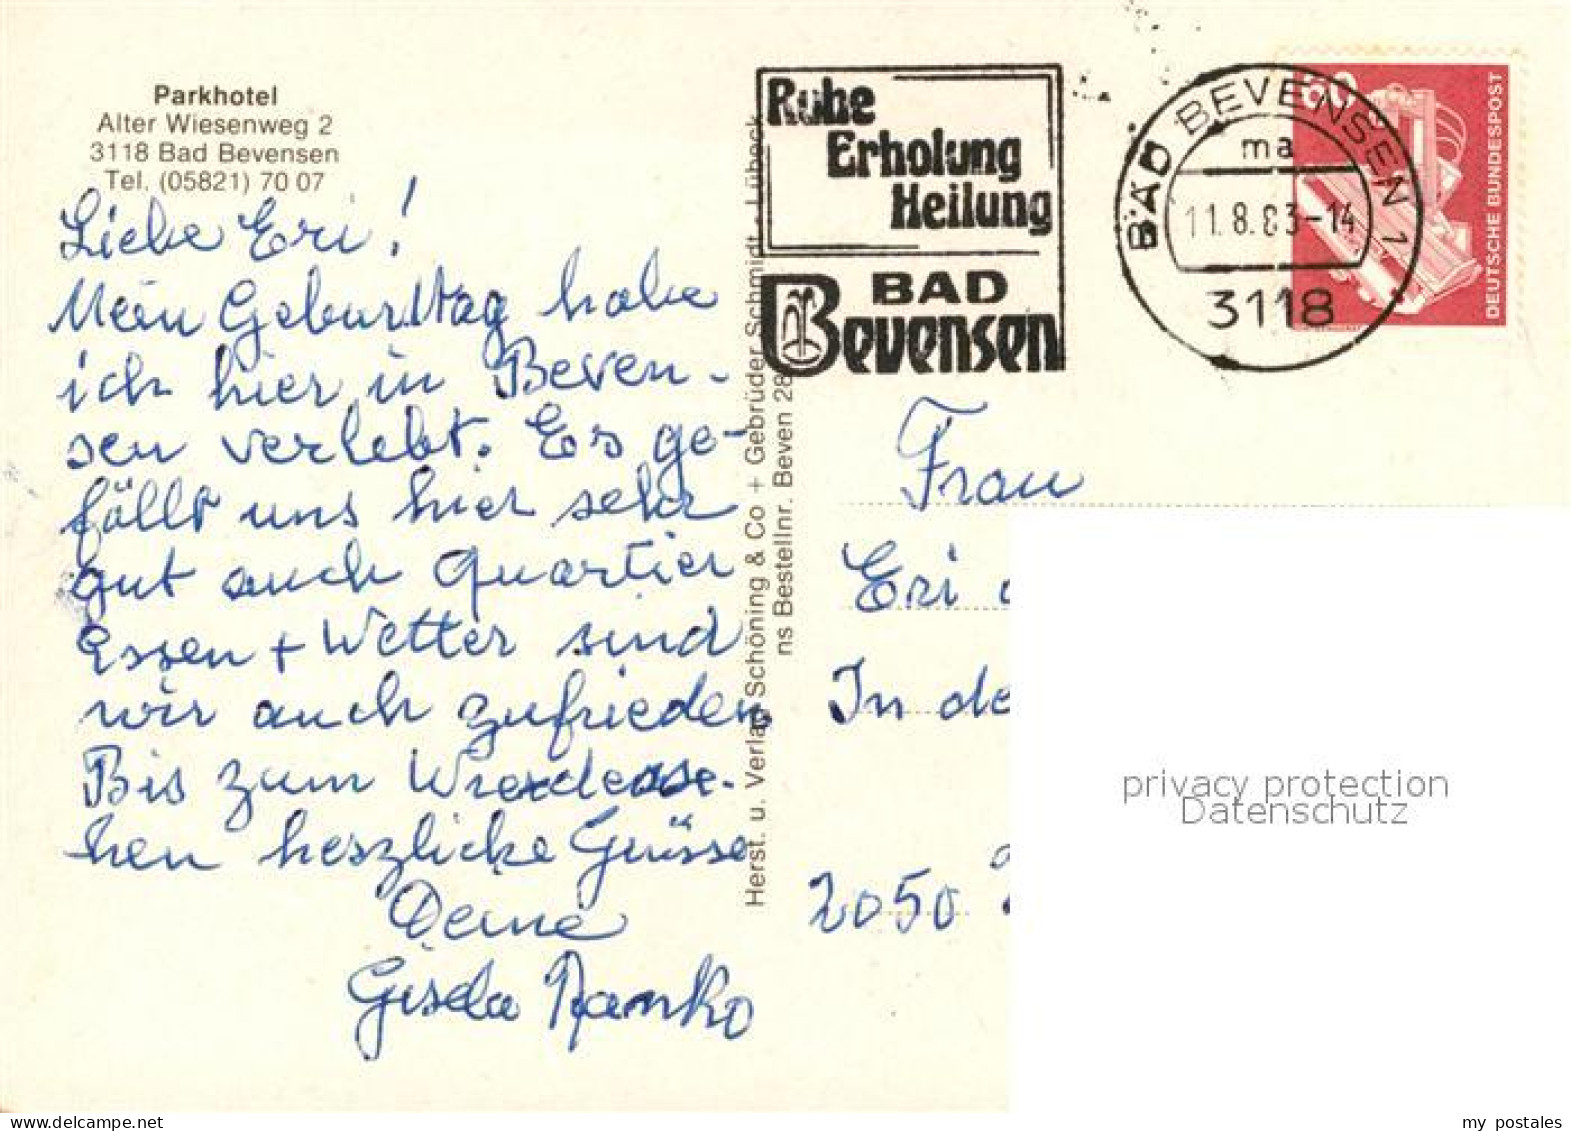 Parkhotel
Alter Wiesenweg 2
3118 Bad Bevensen
Tel. (05821) 70 07
Liebe Eri!
Mein Geburtstag habe
ich hier in Beven-
sen verlebt. Es ge-
fällt uns hier sehr
gut auch Quartier
Essen + Wetter sind
wir auch zufrieden
Bis zum Wiederse-
hen herzliche Grüsse
Deine
Gisela
Herst. u. Verlag Schöning & Co + Gebrüder Schmidt, Lübeck
ns Bestellnr. Beven 28
Ruhe
Erholung
Heilung
BAD
Bevensen
BAD BEVENSEN 1
ma
11.8.83-14
3118
80
DEUTSCHE BUNDESPOST
Frau
Eri
In de
2050
privacy protection
Datenschutz
my postales